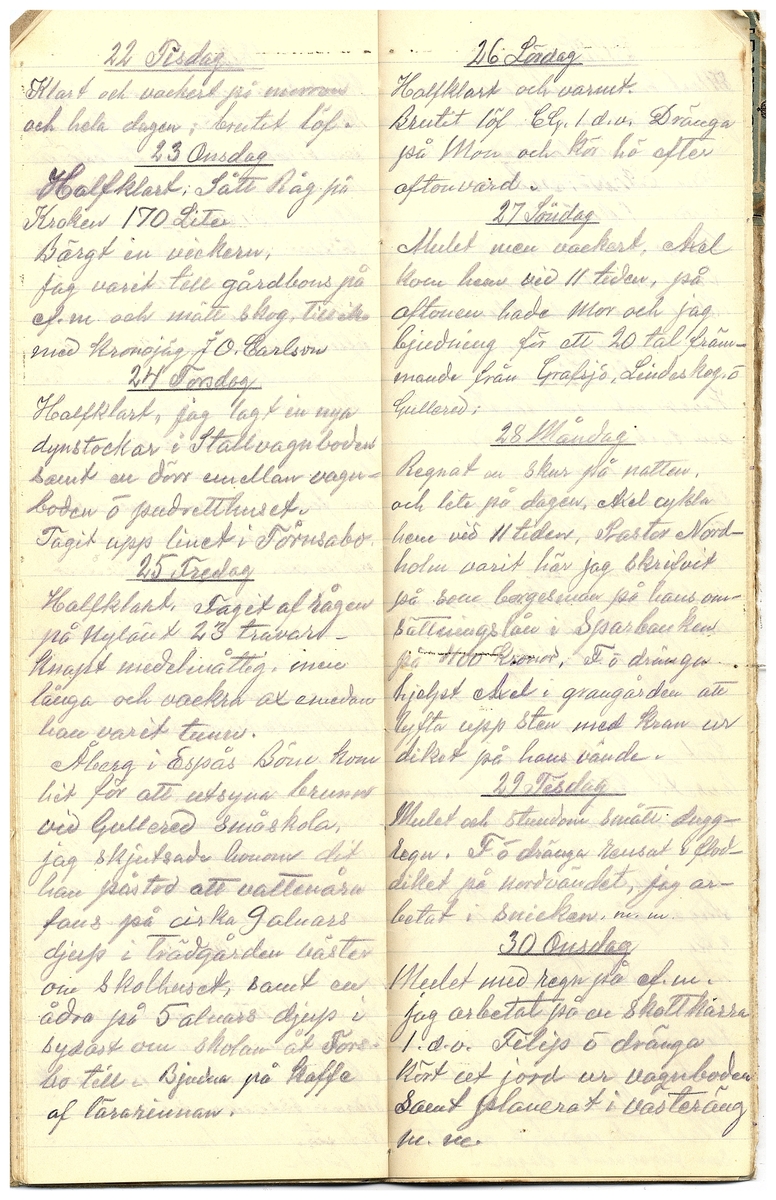 22 Tisdag
Klart och vackert på morron
och hela dagen; brutit löf.
23 Onsdag
Halfklart; Sått Råg på
Kroken 170 Liter
Bärgt in vickern,
jag varit till gårdbons på
ef.m. och mätt skog,
med kronojäg J O. Carlson
24 Torsdag
Halfklart, jag lagt in nya
dynstockar i Stallvagnboden
samt en dörr emellan vagn-
boden ö pudretthuset.
Tagit upp linet i Törnsabo.
25 Fredag
Halfklart. Taget af rågen
på Nylänt 23 travar -
Knapt medelmåttig. men
långa och vackra ax emedan
han varit tunn.
Åberg i EspåsBöne kom
hit för att utsyna brunn
vid Gullered småskola,
jag skjutsade honom dit
han påstod att vattenåra
fans på cirka 9 alnars
djup i trädgården väster
om Skolhuset, samt en
ådra på 5 alnars djup i
sydost om skolan åt Fors-
bo till. Bjudna på Kaffe
af lärarinnan.
26 Lördag
Halfklart och varmt.
Brutit löf Elg. 1.d.v. Dränga
på Mon och kör hö efter
aftonvard.
27 Söndag
Mulet men vackert, Axel
kom hem vid 11 tiden, på
aftonen hade Mor och jag
bjudning för ett 20 tal främ-
mande från Grafsjö, Lindeskog. ö
Gullered;
28 Måndag
Regnat en skur på natten,
och lite på dagen, Axel cykla
hem vid 11 tiden, Pastor Nord-
holm varit här jag skrifvit
på som borgesman på hans om-
sättningslån i Sparbanken
på 1100 Kronor, F ö dränga
hjelpt Axel i grangården att
lyfta upp sten med kran ur
diket på hans vände.
29 Tisdag
Mulet och stundom smått dugg-
regn. F ö dränga rensat i flod-
diket på nordvändet, jag ar-
betat i snicken. m. m.
30 Onsdag
Mulet med regn på ef.m.
jag arbetat på en Skottkärra
1.d.v. Filip ö dränga
Kört ut jord ur vagnboden
samt planerat i västeräng
m. m.